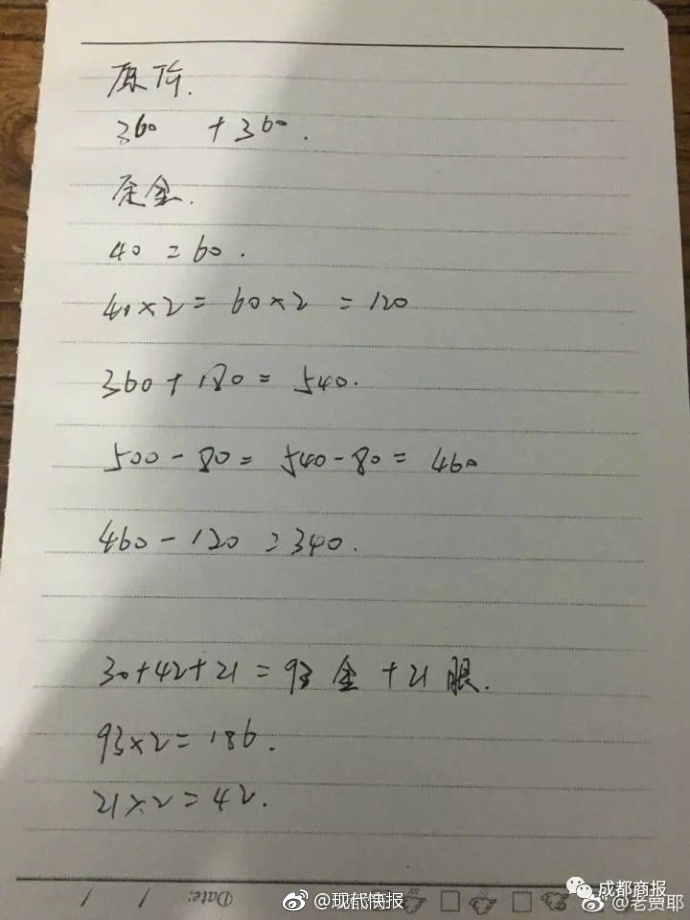 原价.
360 +360.
定金.
40 = 60.
40×2= 60×2 =120
360+180= 540.
500-80= 540-80= 460
460-120 =340.
30+42+21 =93 金 +21 眼.
93×2=186.
21×2=42.
Date:
成都商报
@现代快报
@老贾耶